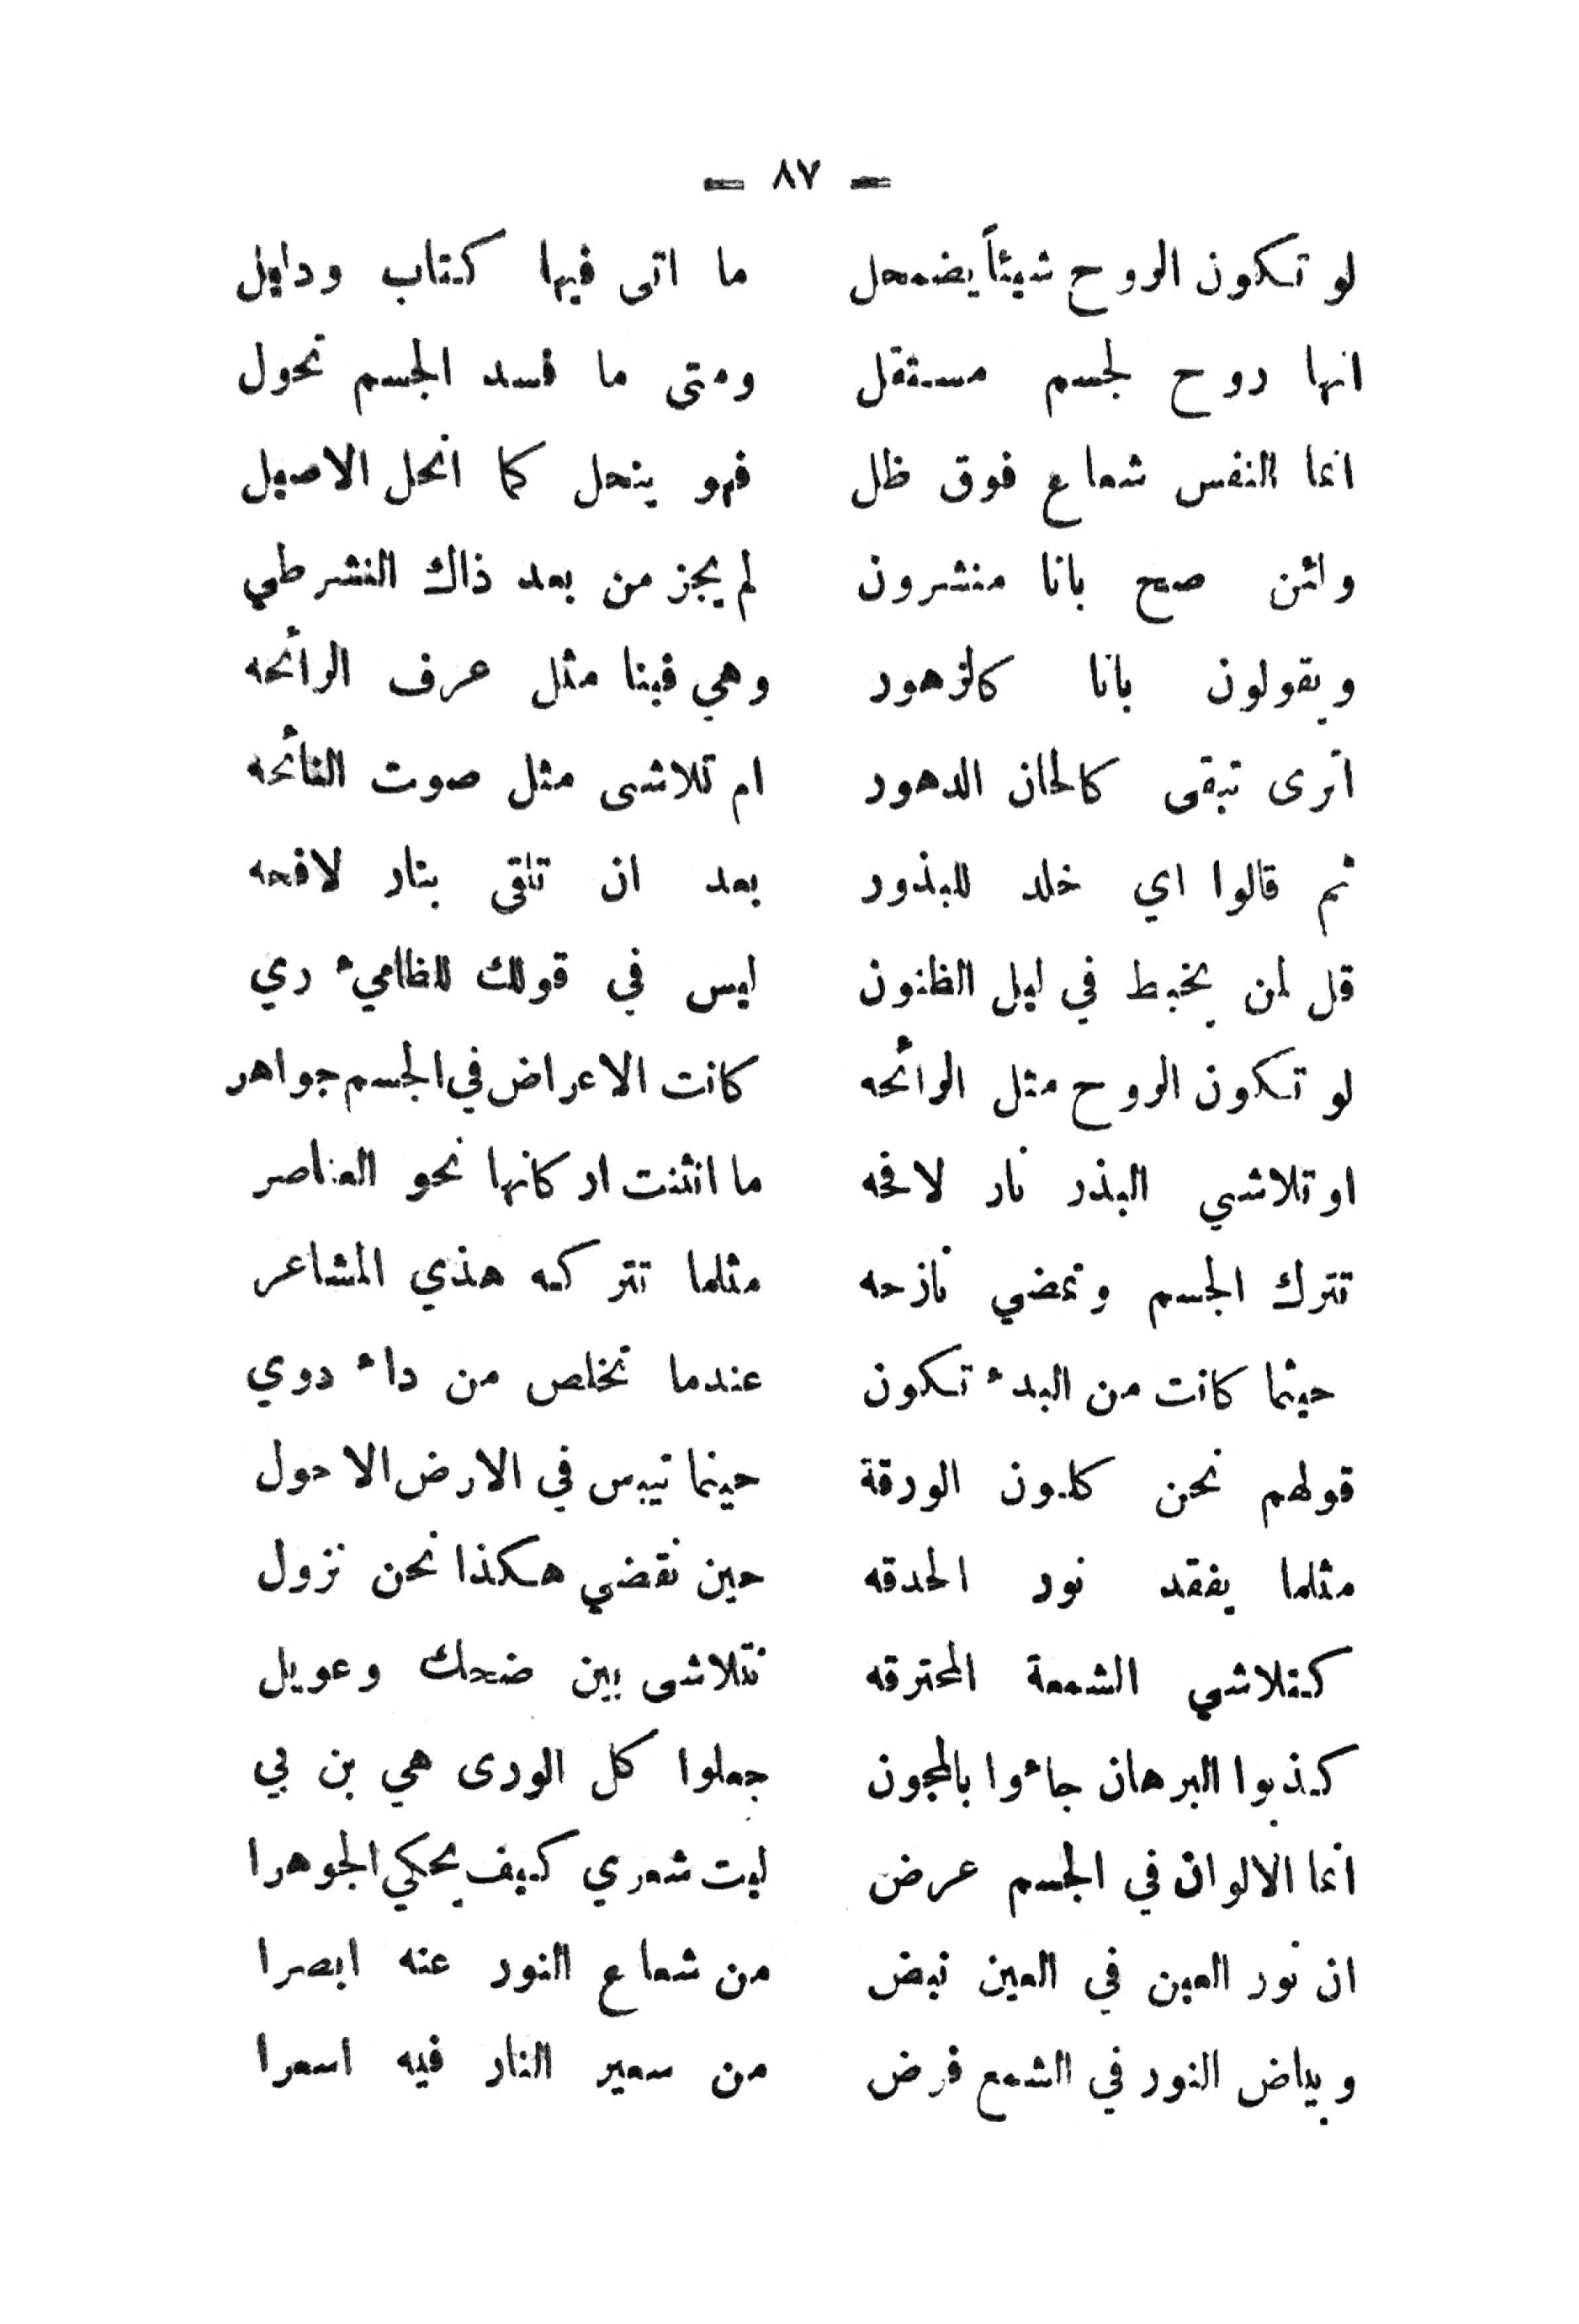 — ٨٧ —
لو تكون الروح شيئاً يضمحل ما اتى فيها كتاب ودليل
انها روح لجسم مستقل ومتى ما فسد الجسم تحول
انما النفس شعاع فوق ظل فهو ينحل كما انحل الاصيل
ولئن صح بانا منشرون لم يجز من بعد ذاك النشر طي
ويقولون بانا كالزهور وهي فينا مثل عرف الرائحه
اترى تبقى كالحان الدهور ام تلاشى مثل صوت النائحه
ثم قالوا اي خلد للبذور بعد ان تلقى بنار لافحه
قل لمن يخبط في ليل الظنون ليس في قولك للظاميء ري
لو تكون الروح مثل الرائحه كانت الاعراض في الجسم جواهر
او تلاشي البذر نار لافحه ما انثنت اركانها نحو العناصر
تترك الجسم وتمضي نازحه مثلما تتركه هذي المشاعر
حيثما كانت من البدء تكون عندما تخلص من داء دوي
قولهم نحن كلون الورقة حينما تيبس في الارض الاحول
مثلما يفقد نور الحدقه حين نقضي هكذا نحن نزول
كتلاشي الشمعة المحترقه نتلاشى بين ضحك وعويل
كذبوا البرهان جاءوا بالمجون جعلوا كل الورى هي بن بي
انما الالوان في الجسم عرض ليت شعري كيف يحكي الجوهرا
ان نور العين في العين نبض من شعاع النور عنه ابصرا
وبياض النور في الشمع فرض من سعير النار فيه اسعرا